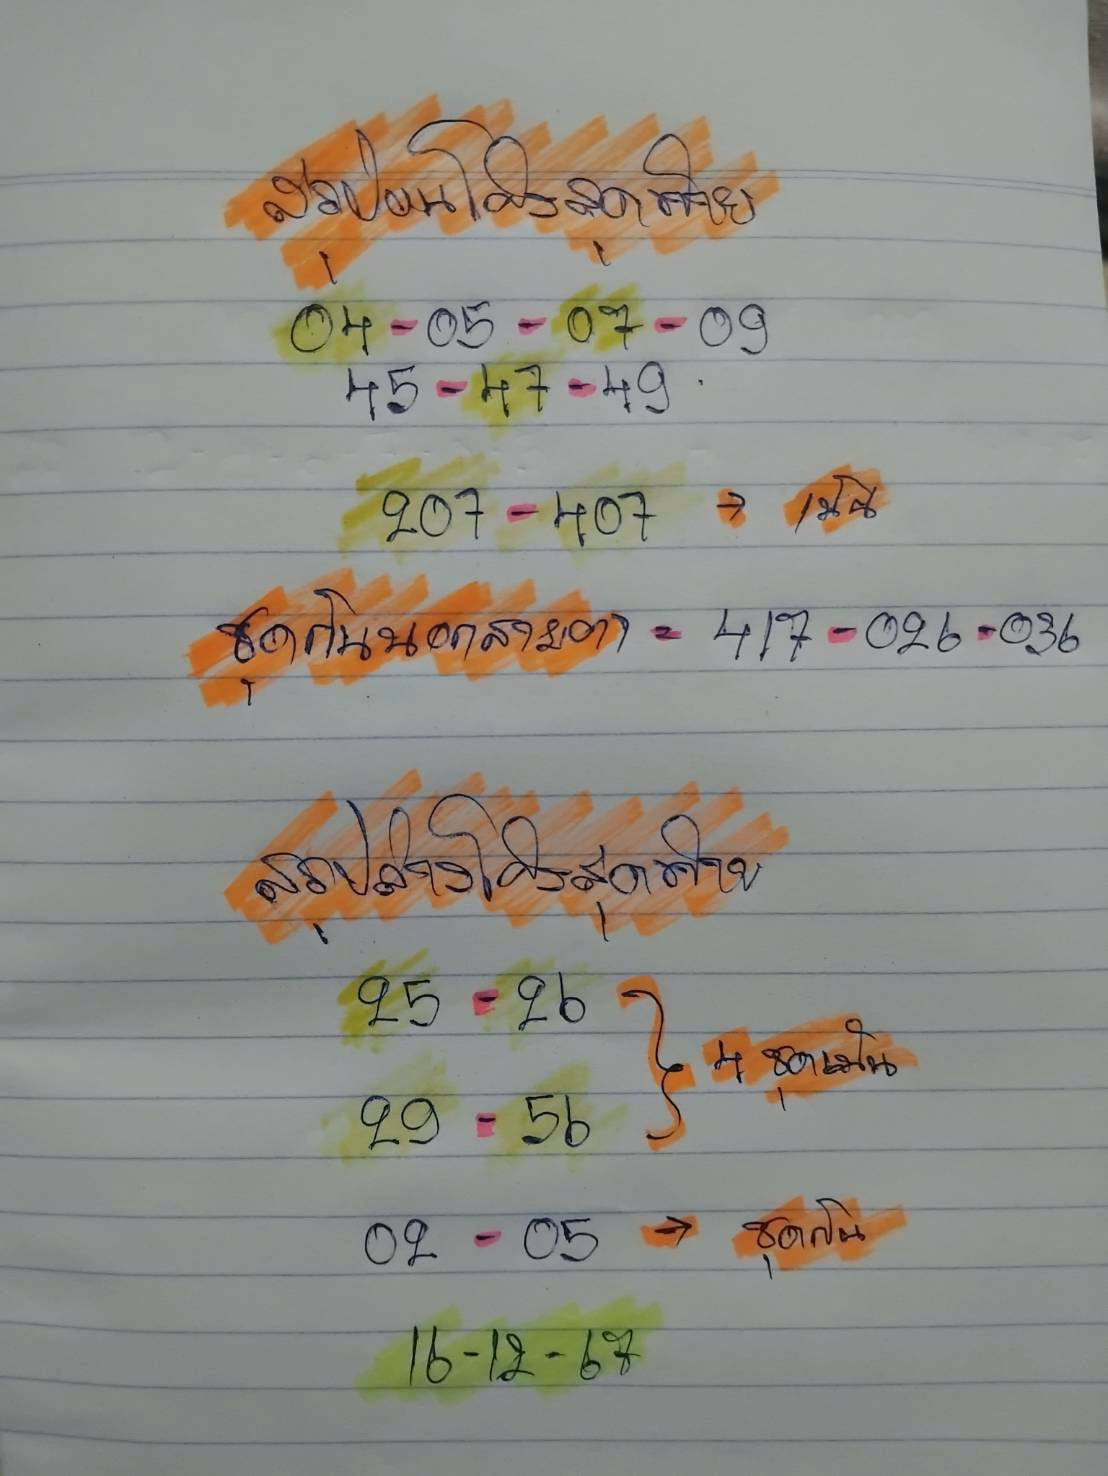 สรุปบนโค้งสุดท้าย
04-05-07-09
45-47-49
207-407 → เม้น
ชุดกันนอกสายตา = 417-026-036
สรุปล่างโค้งสุดท้าย
25-26
4 ชุดเม้น
29-56
02-05 → ชุดกัน
16-12-67